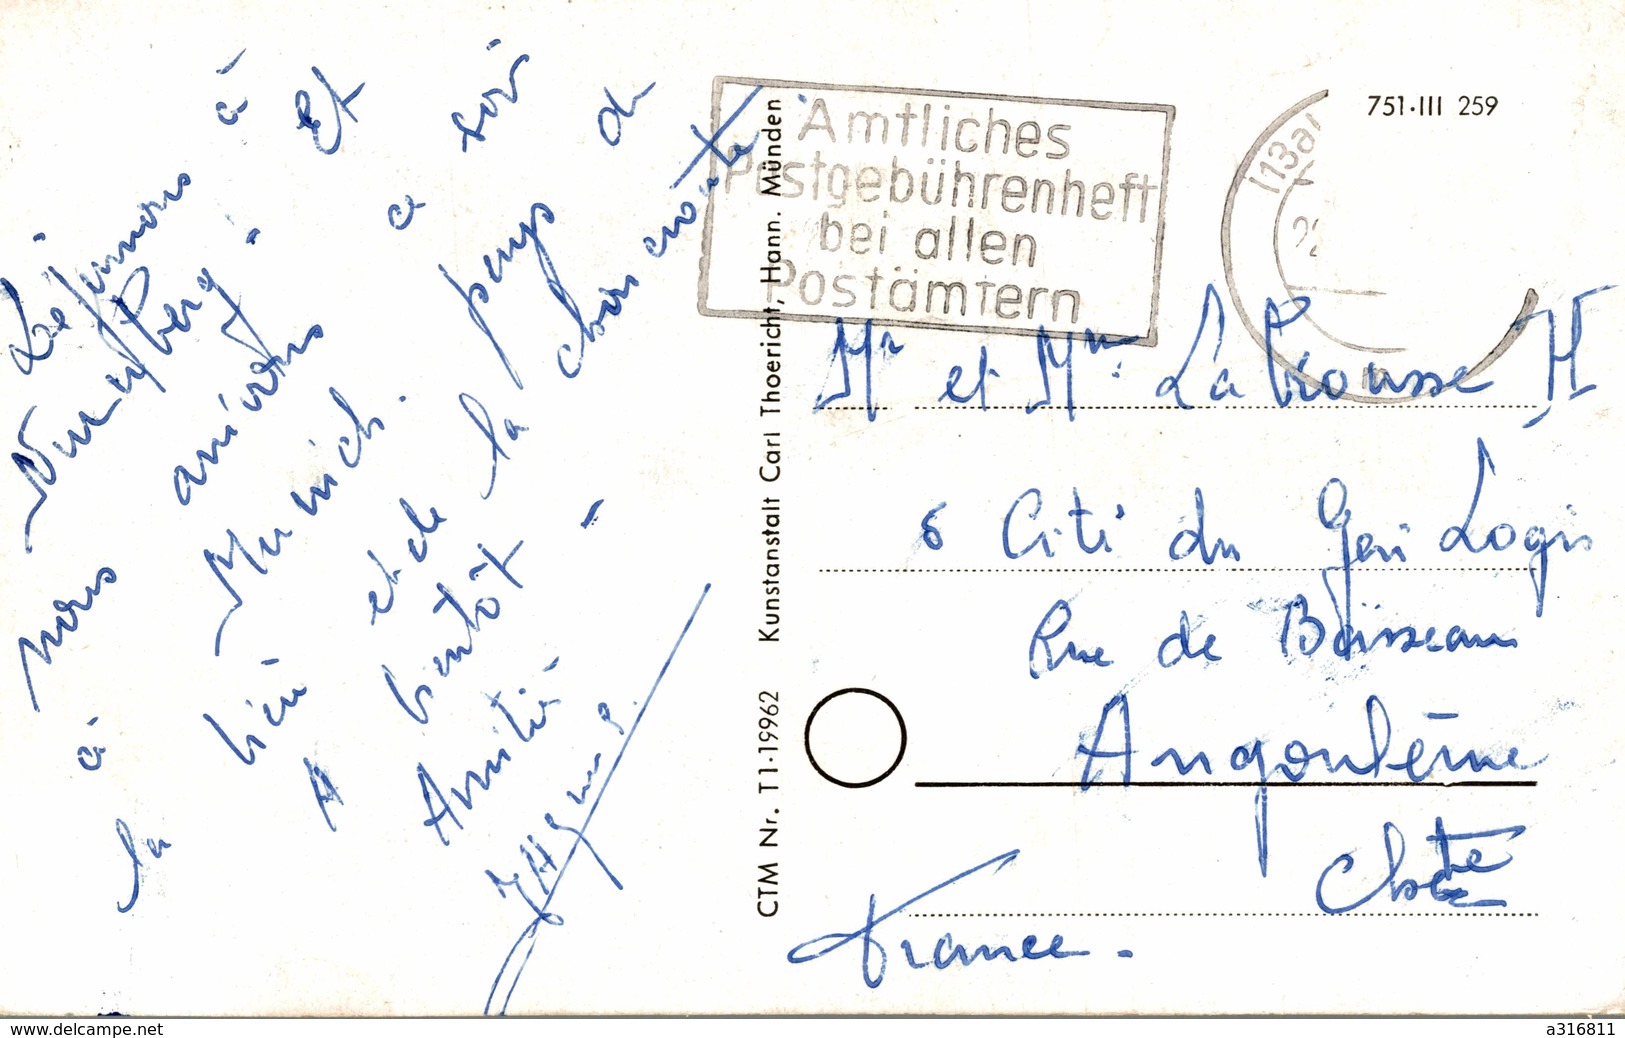 Déjeunons à
Nurnberg. Et
nous arrivons ce soir
à Munich. pays de
la bière et de la choucroute
A bientôt -
Amitié
Amtliches
Postgebührenheft
bei allen
Postämtern
751·III 259
CTM Nr. T1-19962 Kunstanstalt Carl Thoericht, Hann. Münden
Mr et Mme La Rousse H
6 Cité du Gai Logis
Rue de Boisseau
Angoulême
Chte
France -
www.delcampe.net
a316811